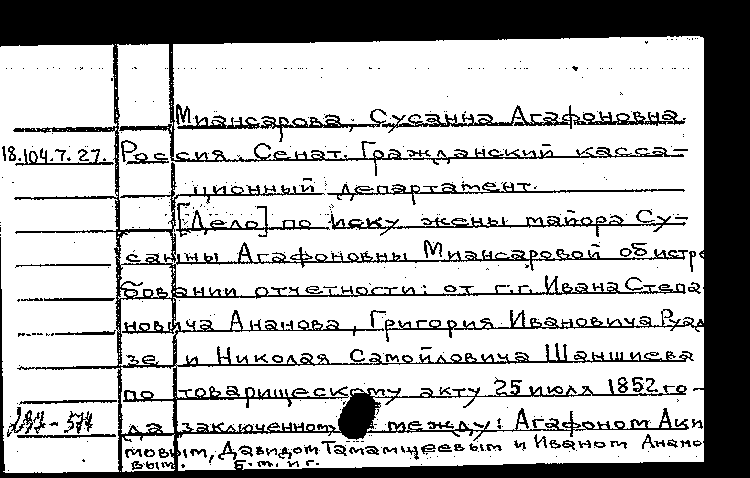 Миансарова, Сусанна Агафоновна.
18.104.7.27. Россия. Сенат. Гражданский касса-
ционный департамент.
[Дело] по иску жены майора Су-
санны Агафоновны Миансаровой об истре
бовании отчетности: от г.г. Ивана Степа
новича Ананова, Григория Ивановича Руад
зе и Николая Самойловича Шаншиева
по товарищескому акту 25 июля 1852 го-
да заключенном между: Агафоном Аки
мовым, Давидом Тамамшевым и Иваном Анано
вым. б.м. и г.